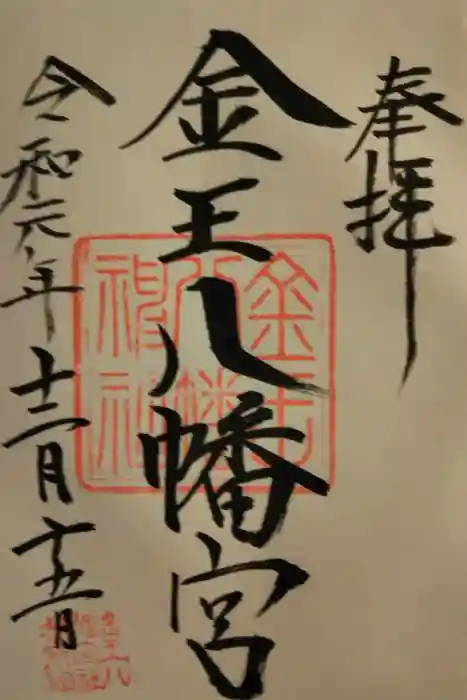 奉拝
金王八幡宮
令和元年十二月十五日
金王八幡神社